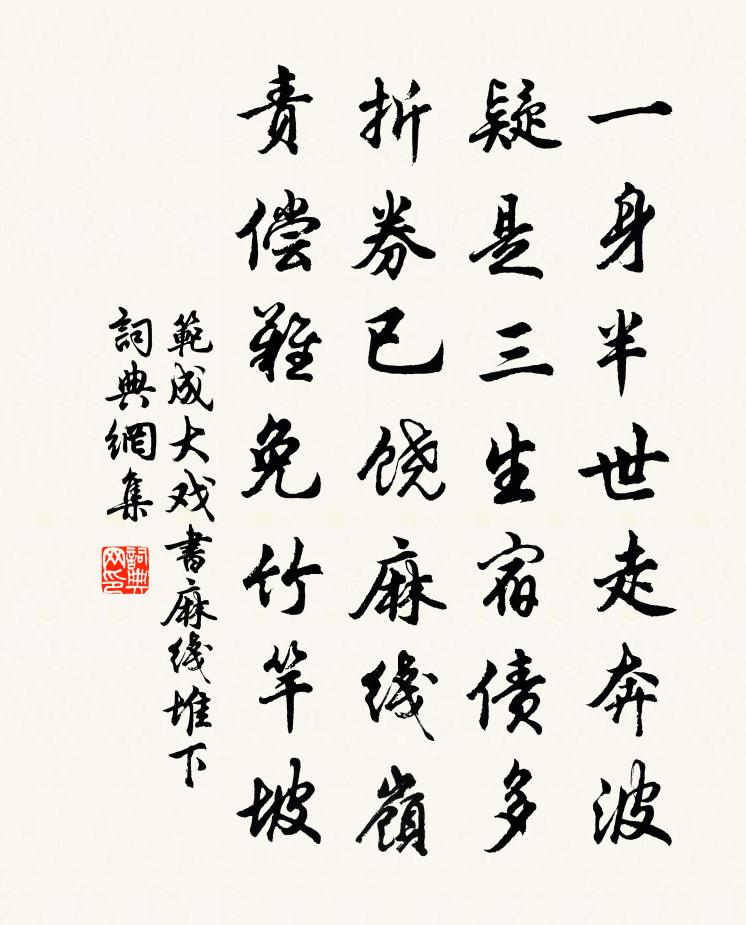 一身半世走奔波
疑是三生宿债多
折券已饶麻线嶺
责偿難免竹竿坡
範成大戏書麻线堆下
詞典網集
詞典网印